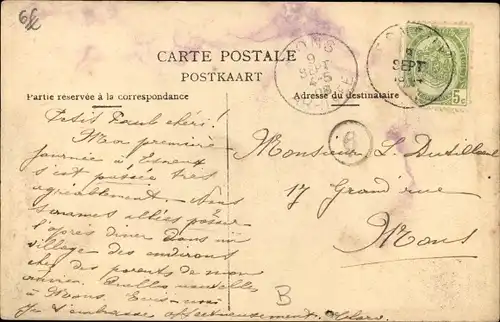 CARTE POSTALE
POSTKAART
Partie réservée à la correspondance
Adresse du destinataire
MONS
9
SEPT
9
SEPT
5c
6
Petit Paul chéri!
Ma première
journée à Esneux
s'est passée très
agréablement. Nous
sommes allées passer
l'après diner dans un
village des environs
chez des parents de mon
Quelles nouvelles
à Mons.
Je t'embrasse affectueusement.
Monsieur L.
17 Grand'rue
Mons
B